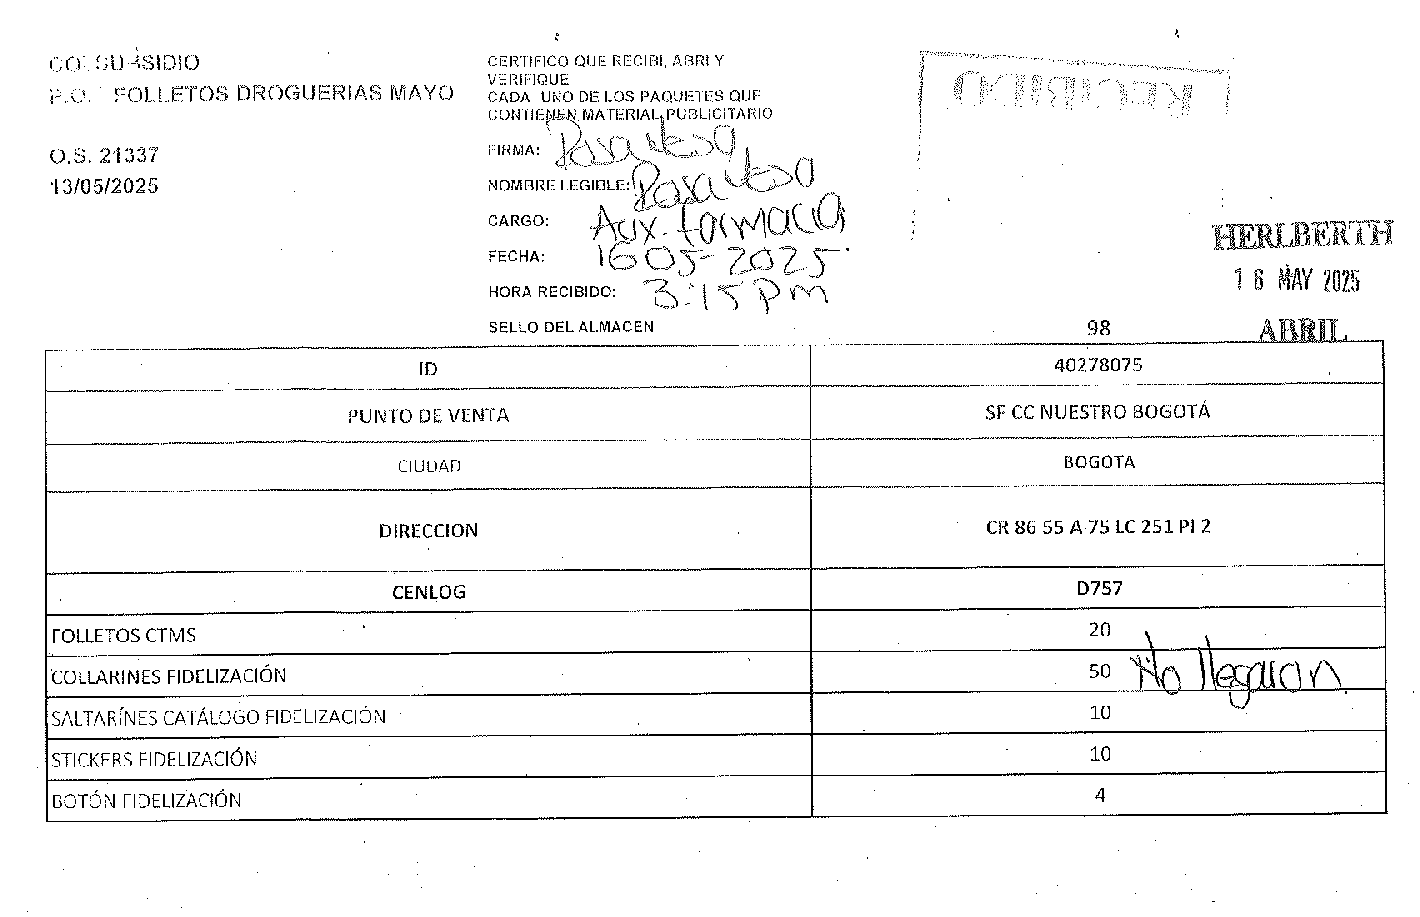 COLSUBSIDIO
P.O. FOLLETOS DROGUERIAS MAYO
O.S. 21337
13/05/2025
CERTIFICO QUE RECIBI, ABRI Y
VERIFIQUE
CADA UNO DE LOS PAQUETES QUE
CONTIENEN MATERIAL PUBLICITARIO
FIRMA:
NOMBRE LEGIBLE: Rosa
CARGO: Aux. farmacia
FECHA: 16 05-2025
HORA RECIBIDO: 3:15 pm
SELLO DEL ALMACEN
98
RECIBIDO
HERLBERTH
16 MAY 2025
ABRIL
ID 40278075
PUNTO DE VENTA SF CC NUESTRO BOGOTÁ
CIUDAD BOGOTA
DIRECCION CR 86 55 A 75 LC 251 PI 2
CENLOG D757
FOLLETOS CTMS 20
COLLARINES FIDELIZACIÓN 50 No llegaron
SALTARÍNES CATÁLOGO FIDELIZACIÓN 10
STICKERS FIDELIZACIÓN 10
BOTÓN FIDELIZACIÓN 4